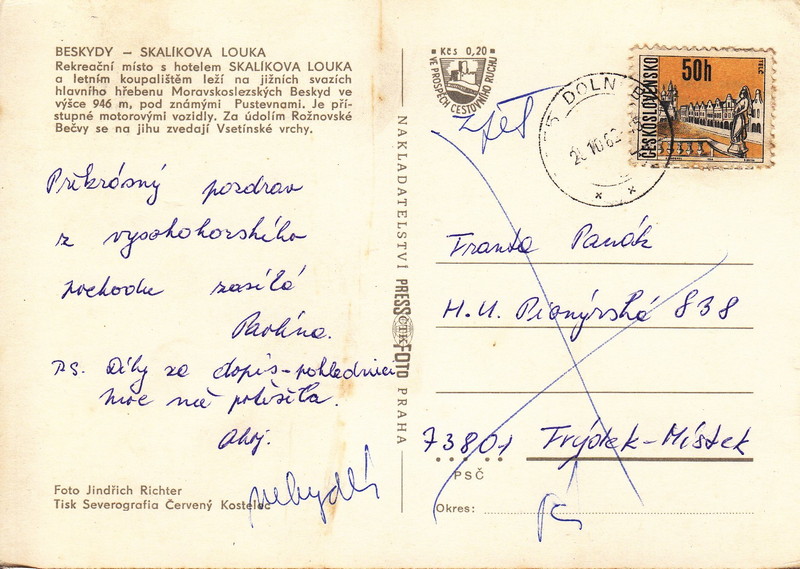 BESKYDY – SKALÍKOVA LOUKA
Rekreační místo s hotelem SKALÍKOVA LOUKA
a letním koupalištěm leží na jižních svazích
hlavního hřebenu Moravskoslezských Beskyd ve
výšce 946 m, pod známými Pustevnami. Je pří-
stupné motorovými vozidly. Za údolím Rožnovské
Bečvy se na jihu zvedají Vsetínské vrchy.
Překrásný pozdrav
z vysokohorského
pochodu zasílá
Pavlína.
P.S. Díky za dopis-pohlednici
moc mě potěšila.
Ahoj.
Foto Jindřich Richter
Tisk Severografia Červený Kostelec
NAKLADATELSTVÍ PRESSFOTO PRAHA
ČTK
Kčs 0,20
VE PROSPĚCH CESTOVNÍHO RUCHU
Zpět
DOLN
ČESKOSLOVENSKO
50h
TELČ
Franta Panák
H.U. Pionýrská 838
73801 Frýdek-Místek
PSČ
Okres: